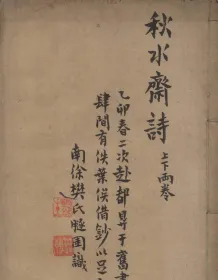 秋水齋詩 上下兩卷
乙卯春二次赴都昇于舊書
肆間有佚葉俟借鈔以足
南徐樊氏睫围識